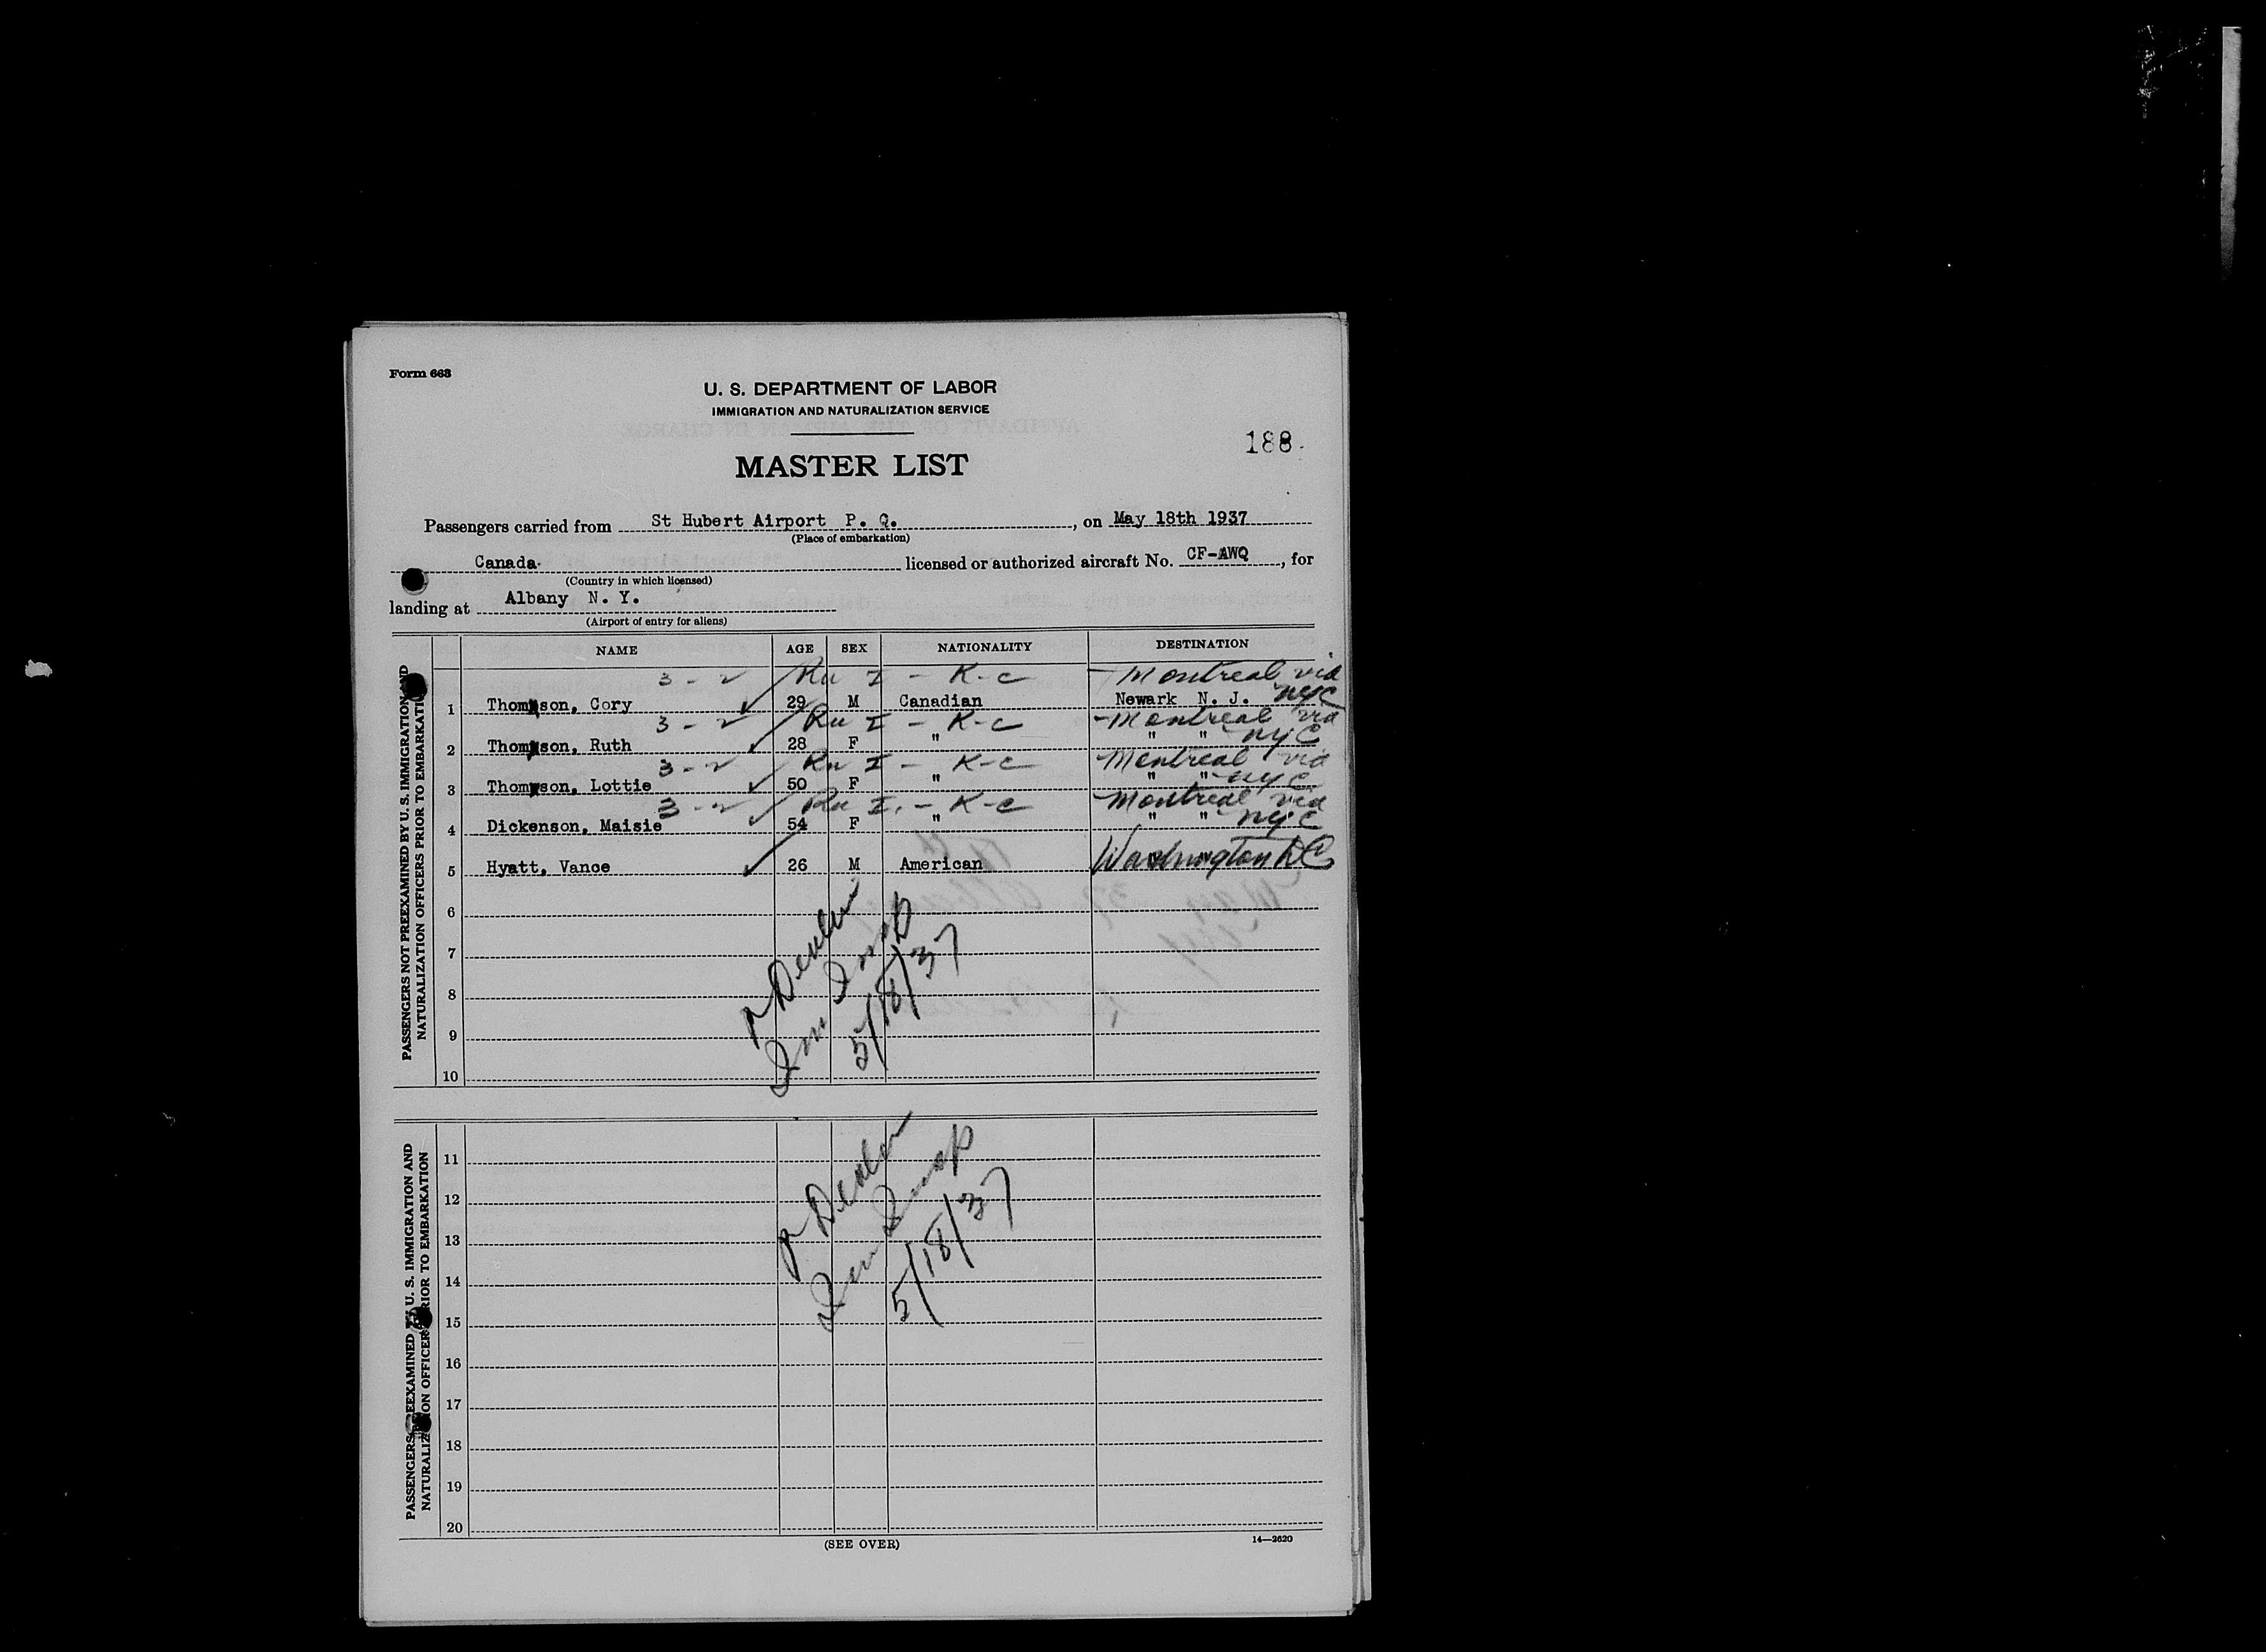 Form 668
U. S. DEPARTMENT OF LABOR
IMMIGRATION AND NATURALIZATION SERVICE
188
MASTER LIST
Passengers carried from St Hubert Airport P. Q., on May 18th 1937
(Place of embarkation)
Canada licensed or authorized aircraft No. CF-AWQ, for
(Country in which licensed)
landing at Albany N. Y.
(Airport of entry for aliens)
NAME AGE SEX NATIONALITY DESTINATION
3 - 2 I - R-C Montreal via
1 Thomson, Cory 29 M Canadian Newark N. J. NYC
3 - 2 I - R-C Montreal via
2 Thomson, Ruth 28 F " " " NYC
3 - 2 I - R-C Montreal via
3 Thomson, Lottie 50 F " " " NYC
3 - 2 I. - R-C Montreal via
4 Dickenson, Maisie 54 F " " " NYC
5 Hyatt, Vance 26 M American Washington DC
6
7
8
9
10
PASSENGERS NOT PREEXAMINED BY U. S. IMMIGRATION AND
NATURALIZATION OFFICERS PRIOR TO EMBARKATION
Imm Insp
5/18/37
11
12
13
14
15
16
17
18
19
20
PASSENGERS PREEXAMINED BY U. S. IMMIGRATION AND
NATURALIZATION OFFICERS PRIOR TO EMBARKATION
Imm Insp
5/18/37
(SEE OVER)
14—2620